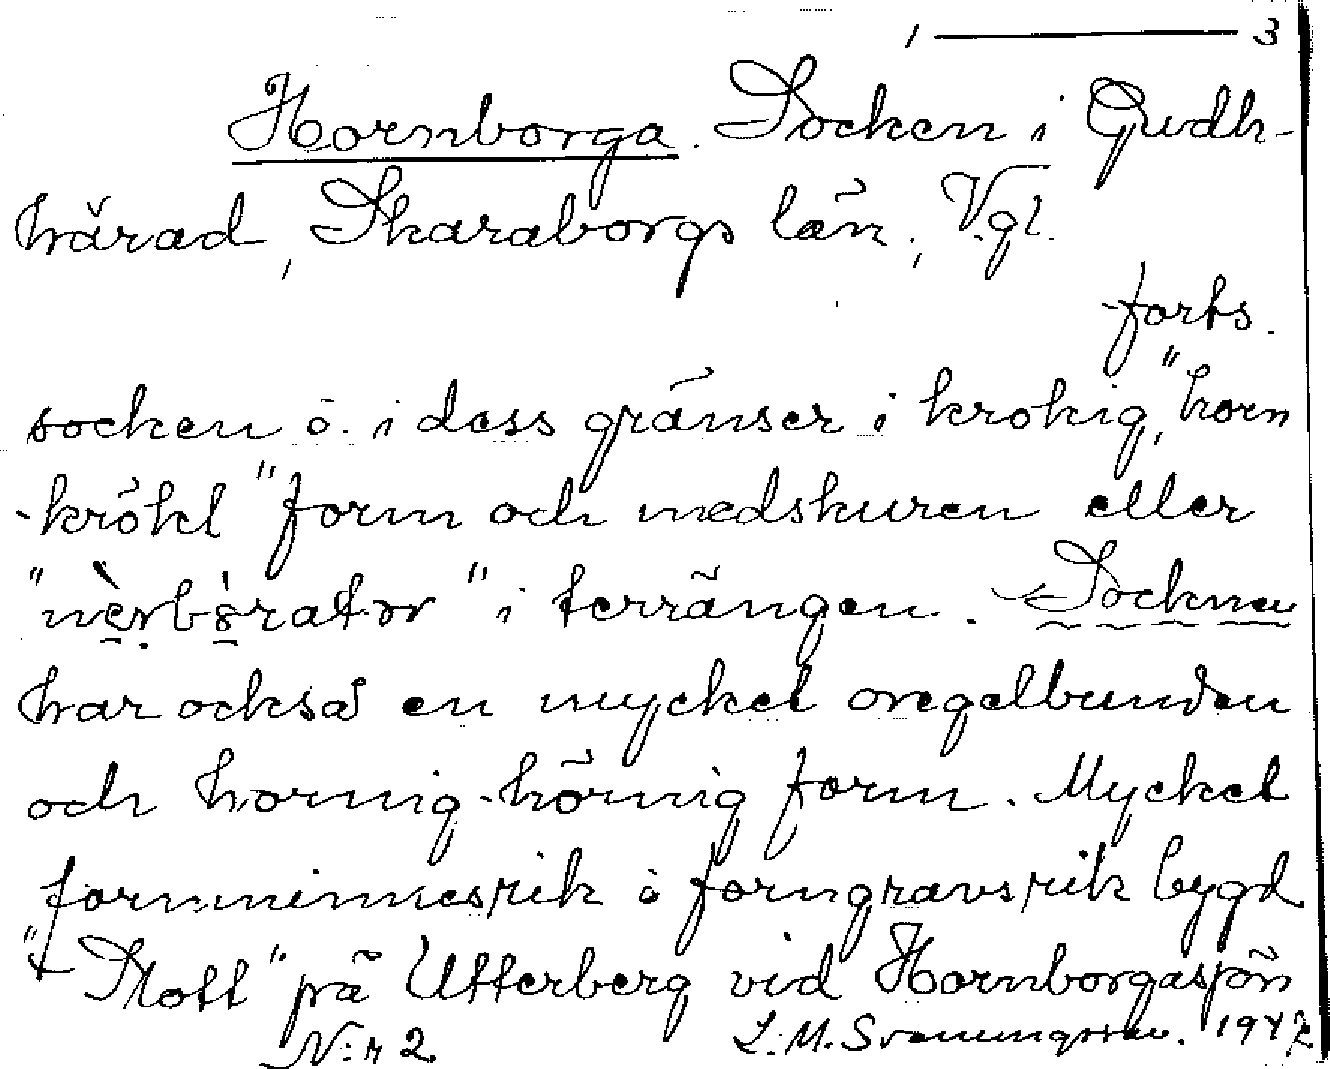 1 — 3
Hornborga. Socken i Gudh-
härad, Skaraborgs län, Vgl.
forts.
socken ö. i dess gränser i krokig, "horn
-krökt" form och nedskuren eller
"i terrängen. Socknen
har också en mycket oregelbunden
och hornig-hörnig form. Mycket
fornminnesrik ö forngravsrik bygd
"+ Slott" på Utterberg vid Hornborgasjön
N:r 2. L. M. Svenungsson. 1942